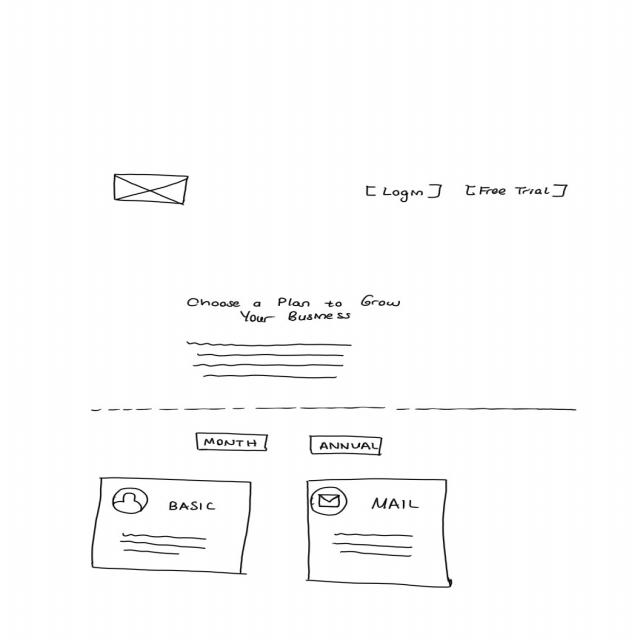 [Login] [Free Trial]
Choose a Plan to Grow
Your Business
MONTH ANNUAL
BASIC MAIL